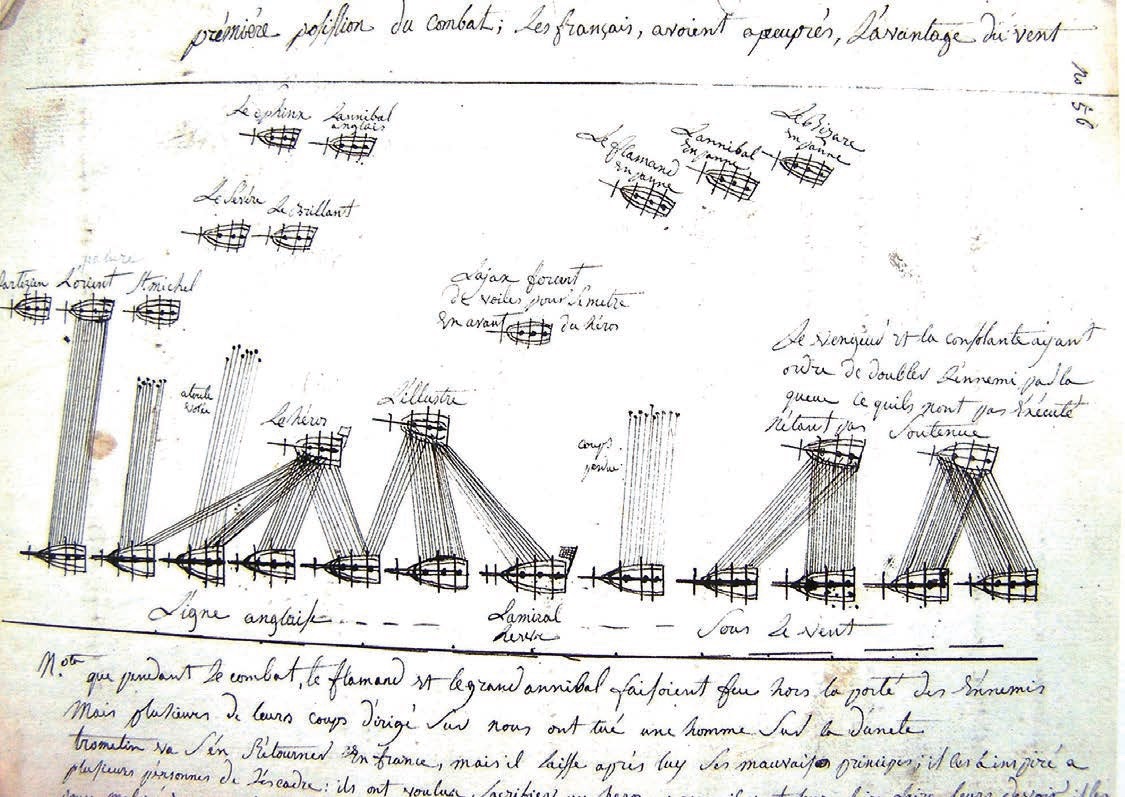 première position du combat; Les français, avoient apeuprés, L'avantage du vent
no 56
Le Sphinx
Lannibal
anglais
Le flamand
En panne
Lannibal
En panne
Le Bizare
En panne
Le Sévère
Le Brillant
Lartezien
L'orient
St michel
Lajax forcent
de voiles pour Semetre
En avant du héros
Le vengeur et la consolante aÿant
ordre de doubler L'ennemi par la
queue ce quils nont pas Exécuté
N'étant pas Soutenue
atoute
Le héros
L'illustre
coups
perdue
Ligne anglaise
Lamiral
Sous Le vent
N.ota que pendant Le combat, le flamand et le grand annibal faisoient feu hors la porté des Ennemis
Mais plusieurs de leurs coups dirigé Sur nous ont tué une homme Sur la dunete
tromelin va S'en Retourner En france, mais il Laisse après luy Ses mauvais principes; il les à inspiré a
plusieurs personnes de L'escadre: ils ont voulue Sacrifier